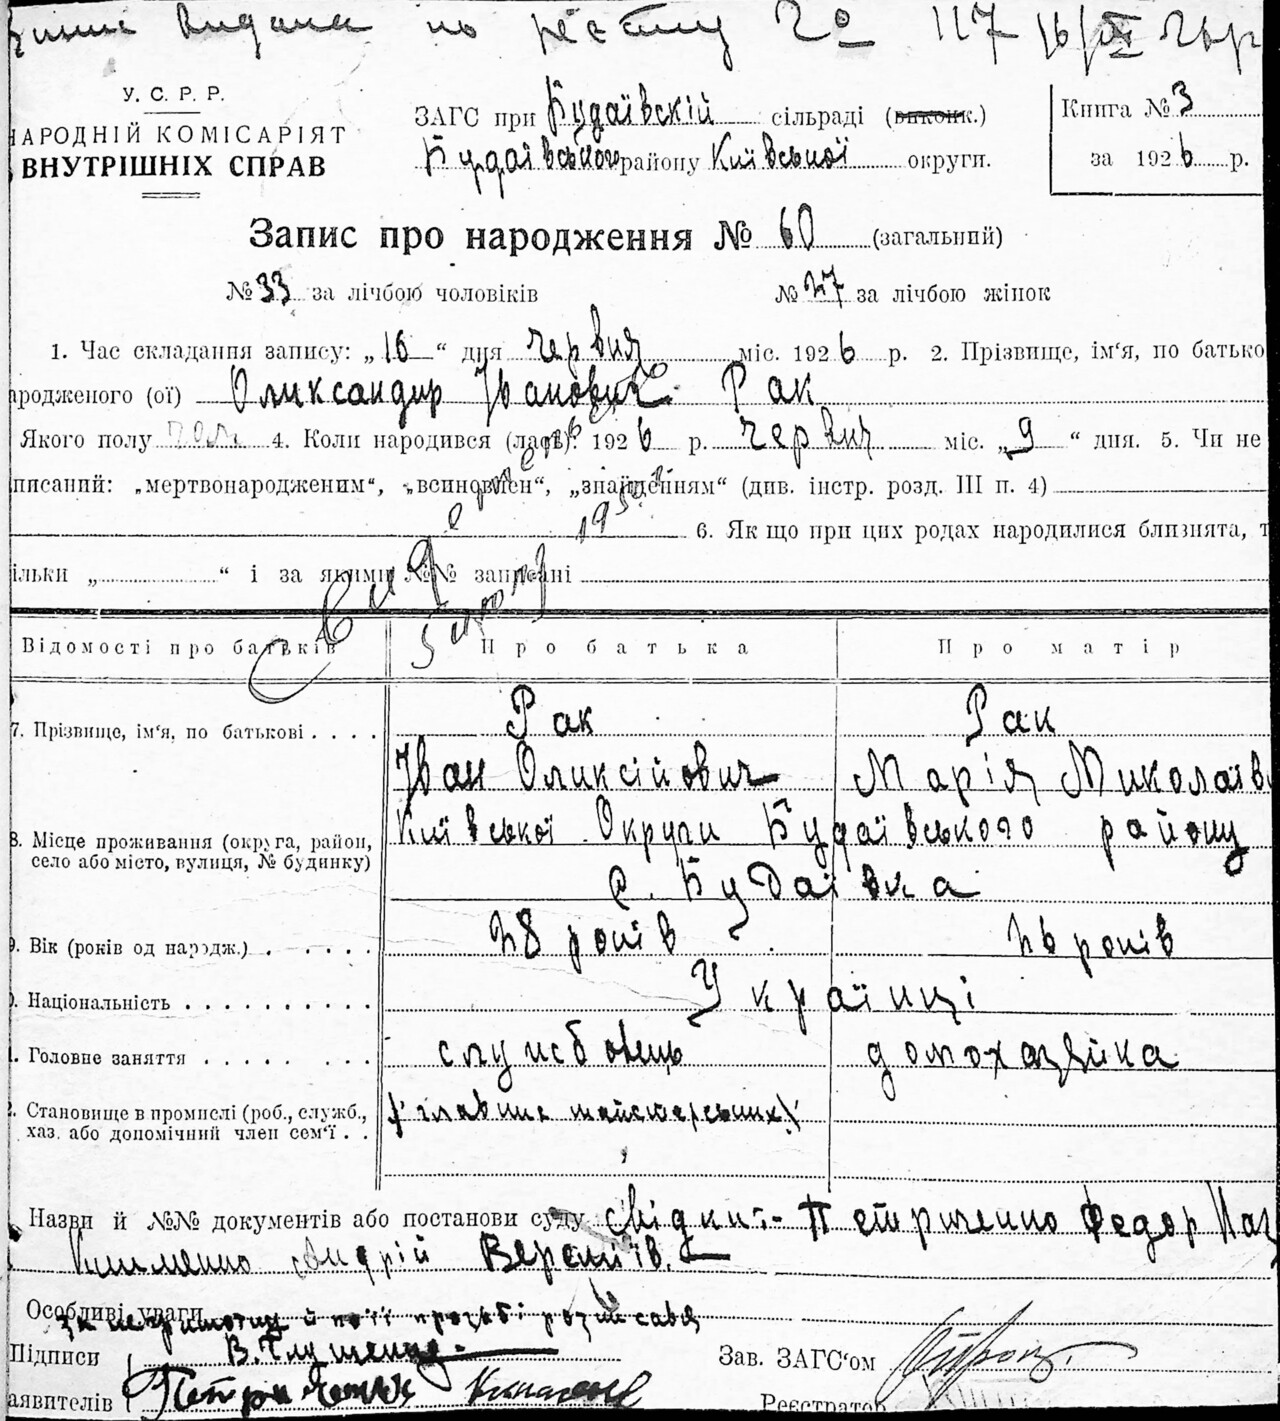 видана по реєстру № 117 16/IX
У. С. Р. Р.
НАРОДНІЙ КОМІСАРІЯТ
ВНУТРІШНІХ СПРАВ
ЗАГС при Будаївскій сільраді (виконк.)
Будаївського району Київської округи.
Книга № 3
за 1926 р.
Запис про народження № 60 (загальний)
№ 33 за лічбою чоловіків № 27 за лічбою жінок
1. Час складання запису: „16“ дня червня міс. 1926 р. 2. Прізвище, ім‘я, по батько
ародженого (ої) Олександир Іванович Рак
Якого полу чол. 4. Коли народився (лась): 1926 р. червня міс. „9“ дня. 5. Чи не
писаний: „мертвонародженим“, „всиновлен“, „знайденням“ (див. інстр. розд. III п. 4)
6. Як що при цих родах народилися близнята, т
ільки „ “ і за якими №№ записані
Відомості про батьків Про батька Про матір
7. Прізвище, ім‘я, по батькові . . . . Рак Рак
Іван Оликсійович Марія Миколаївн
8. Місце проживання (округа, район, село або місто, вулиця, № будинку) Київської Округи Будаївського району
с. Будаївка
9. Вік (років од народж.) . . . . . 28 років 26 років
0. Національність . . . . . . . . . Українці
1. Головне заняття . . . . . . . . службовець домохазяйка
2. Становище в промислі (роб., служб., хаз. або допомічний член сем‘ї . .
Назви й №№ документів або постанови суду свідки:- Петриченно Федор
Андрій
Особливі уваги
й по її прозьбі росписався
Підписи В. Глущенко Зав. ЗАГС‘ом
аявителів Петриченко Реєстратор